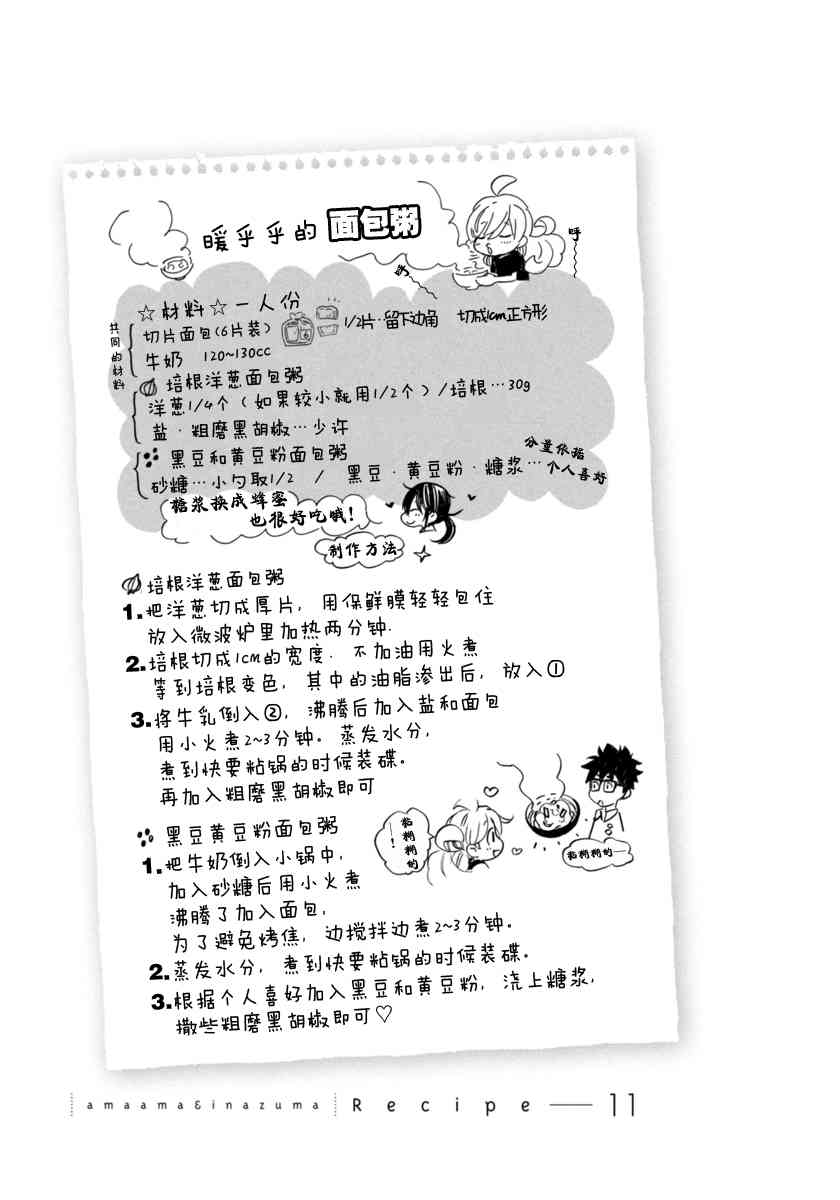 暖乎乎的 面包粥
呼
呼
☆材料☆一人份
共同的材料
切片面包(6片装) 1/2片··留下边角 切成1cm正方形
牛奶 120~130cc
培根洋葱面包粥
洋葱1/4个(如果较小就用1/2个)/培根…30g
盐·粗磨黑胡椒…少许
黑豆和黄豆粉面包粥
砂糖…小勺取1/2 / 黑豆·黄豆粉·糖浆…个人喜好
分量依据
糖浆换成蜂蜜
也很好吃哦!
制作方法
培根洋葱面包粥
1.把洋葱切成厚片, 用保鲜膜轻轻包住
放入微波炉里加热两分钟.
2.培根切成1cm的宽度. 不加油用火煮
等到培根变色, 其中的油脂渗出后, 放入①
3.将牛乳倒入②, 沸腾后加入盐和面包
用小火煮2~3分钟。蒸发水分,
煮到快要粘锅的时候装碟。
再加入粗磨黑胡椒即可
粘糊糊的!
粘糊糊的—
黑豆黄豆粉面包粥
1.把牛奶倒入小锅中,
加入砂糖后用小火煮
沸腾了加入面包,
为了避免烤焦, 边搅拌边煮2~3分钟。
2.蒸发水分, 煮到快要粘锅的时候装碟。
3.根据个人喜好加入黑豆和黄豆粉, 浇上糖浆,
撒些粗磨黑胡椒即可♡
amaama&inazuma Recipe — 11